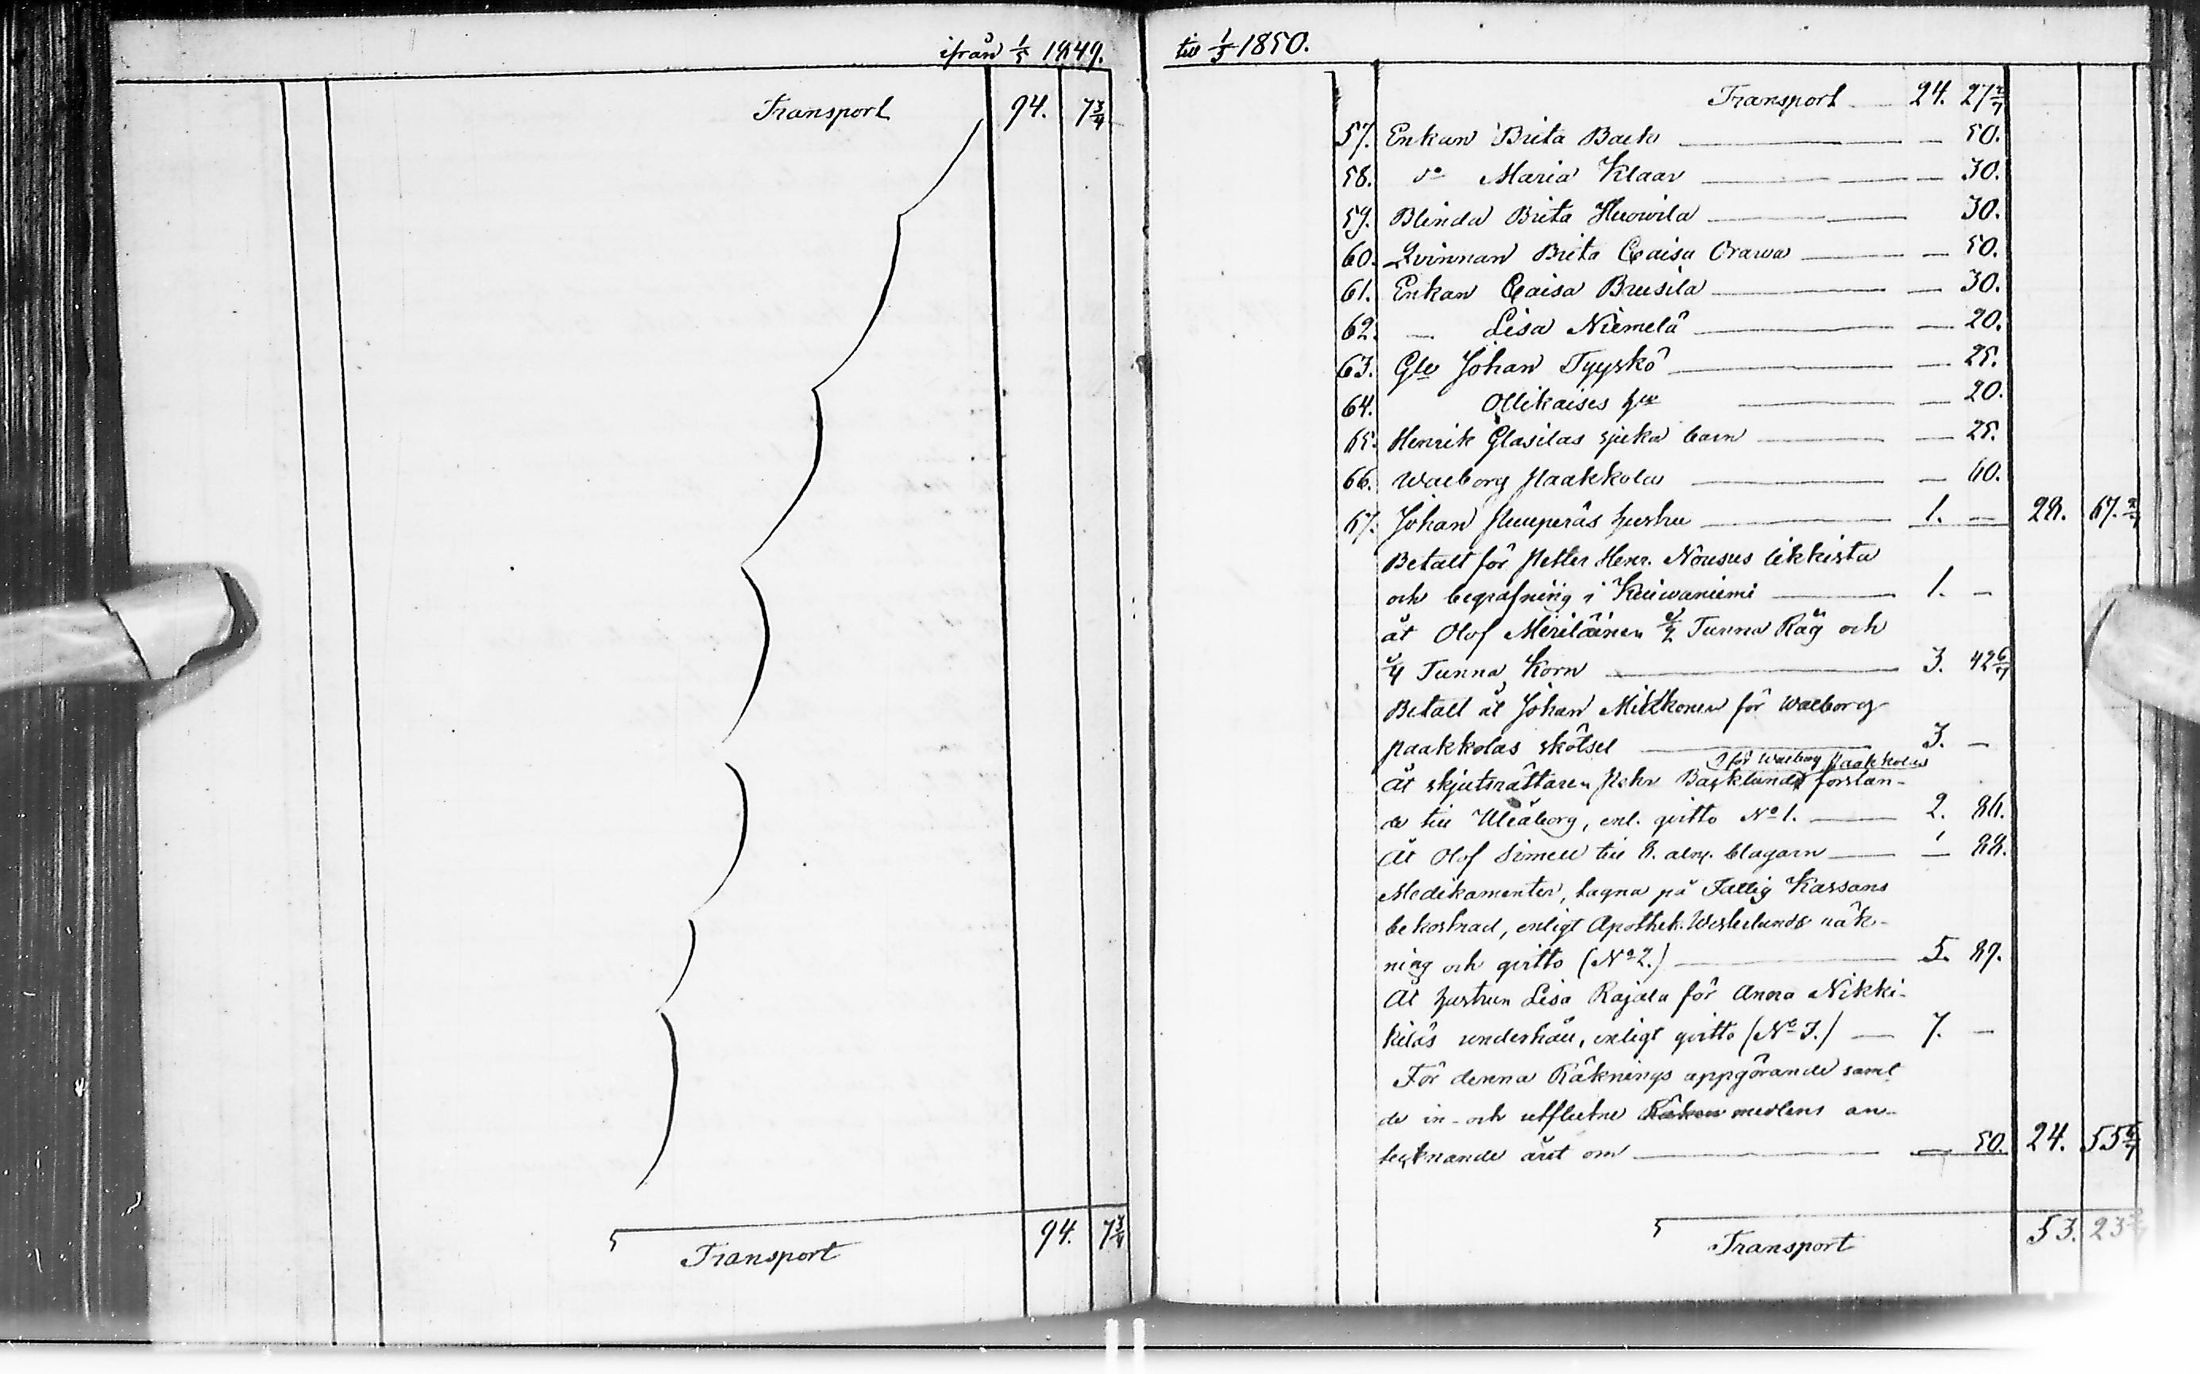 ifrån 1/5 1849.
Transport 94. 7 3/4
Transport 94. 7 3/4
till 1/5 1850.
Transport 24. 27 2/7
57. Enkan Brita Back — 50.
58. do Maria Klaav — 30.
59. Blinda Brita Huowila — 30.
60. Qvinnan Brita Caisa Orawa — 50.
61. Enkan Caisa Bruusila — 30.
62. — Lisa Niemelä — 20.
63. Gle Johan Tyyskö — 25.
64. Ollikaises — 20.
65. Henrik Glasilas sjuka barn — 25.
66. Walborg Paakkola — 60.
67. Johan Puuperäs hustru 1. — 28. 67. 2/7
Betalt för Petter Henr. Nousus likkista
och begrafning i Kuiwaniemi 1. —
åt Olof Meriläinen 1/2 Tunna Råg och
1/4 Tunna Korn 3. 42 6/7
Betalt åt Johan Mikkonen för Walborg
Paakkolas skötsel 3. —
för Walborg Paakkolas
Åt skjutsrättaren Pehr Backlund forslan-
de till Uleåborg, enl. qvitto No 1. 2. 86.
Åt Olof Simell till 8. aln. blagarn — 88.
Medikamenter, tagna på Fattig Kassans
bekostnad, enligt Apothek. Westerlunds räk-
ning och qvitto (No 2.) 5. 87.
Åt hustrun Lisa Rajala för Anna Nikki-
kiläs underhåll, enligt qvitto (No 3.) 7. —
För denna Räknings uppgörande samt
de in- och utflutne medlens an-
tecknande året om — 50. 24. 55 6/7
Transport 53. 23